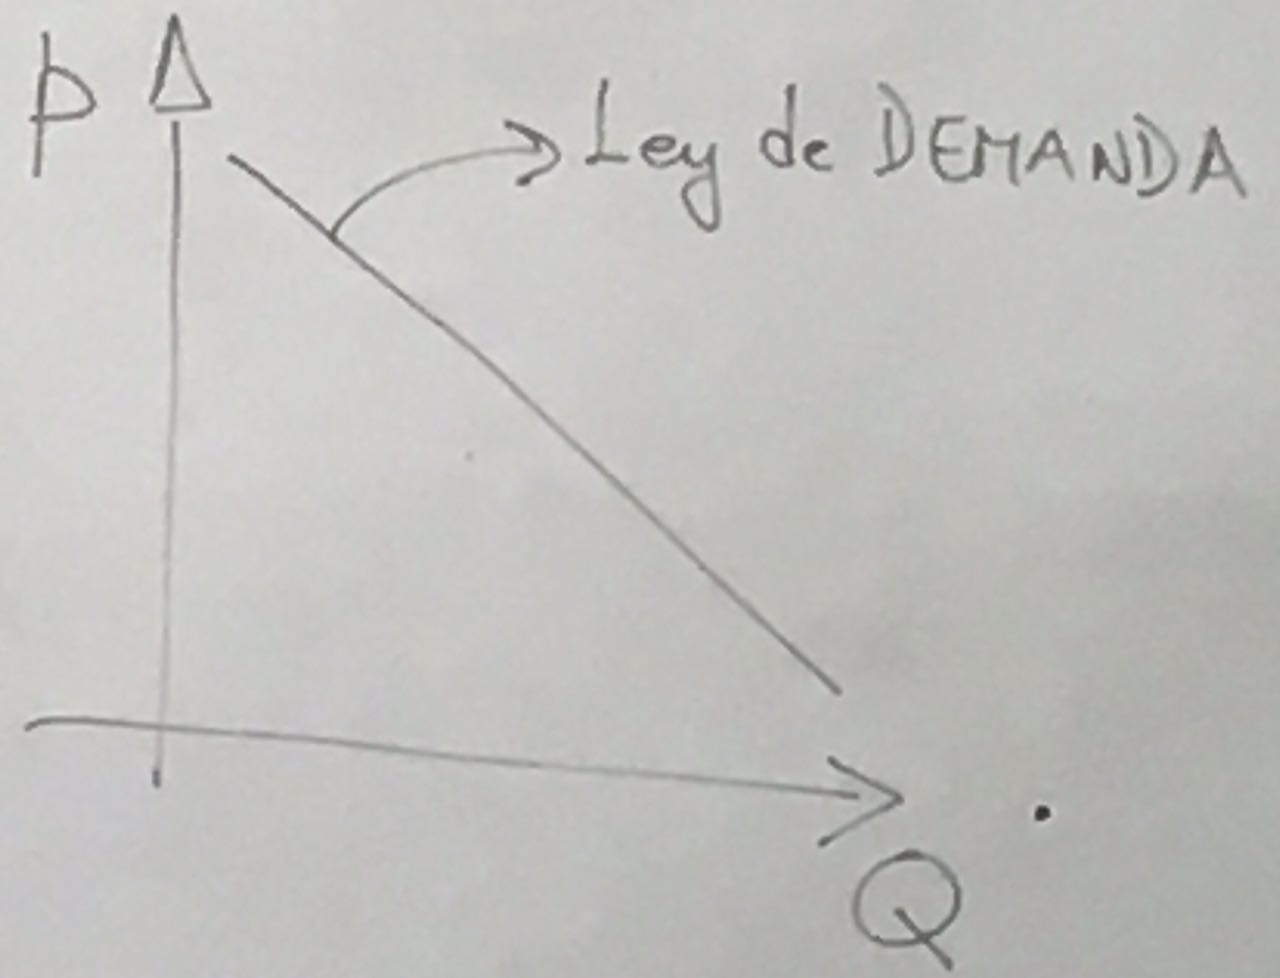 p
Ley de DEMANDA
Q